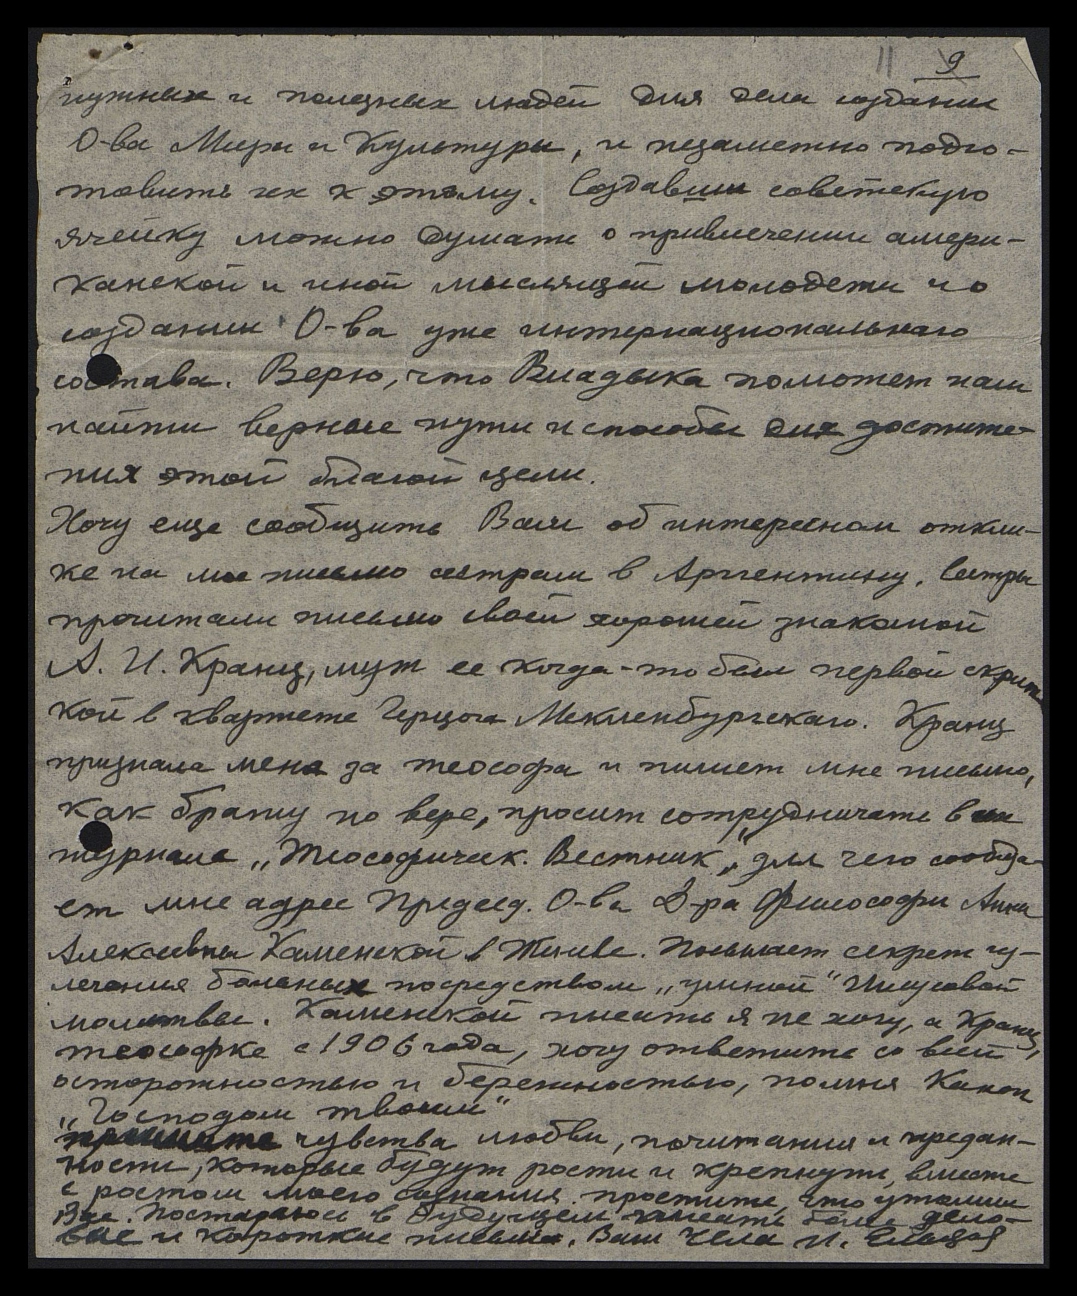 11 9
нужных и полезных людей для дела создания
О-ва Мира и Культуры, и незаметно подго-
товить их к этому. Создавши советскую
ячейку можно думать о привлечении амери-
канской и иной мыслящей молодежи и о
создании О-ва уже интернациональнаго
состава. Верю, что Владыка поможет нам
найти верные пути и способы для достиже-
ния этой благой цели.
Хочу еще сообщить Вам об интересном откли-
ке на мое письмо сестрам в Аргентину. Сестры
прочитали письмо своей хорошей знакомой
А. И. Кранц, муж ее когда-то был первой скрип
кой в квартете Герцога Мекленбургскаго. Кранц
признала меня за теософа и пишет мне письмо,
как брату по вере, просит сотрудничать в их
журнале „Теософическ. Вестник", для чего сообща-
ет мне адрес Председ. О-ва Д-ра Философии Анны
Алексеевны Каменской в Женеве. Посылает секрет из-
лечения больных посредством „умной" Иисусовой
молитвы. Каменской писать я не хочу, а Кранц,
теософке с 1906 года, хочу ответить со всей
осторожностью и бережностью, помня Канон
„Господом твоим"
примите чувства любви, почитания и предан-
ности, которые будут рости и крепнуть, вместе
с ростом моего сознания. простите, что утомил
Вас. Постараюсь в будущем писать более дело-
вые и короткие письма. Ваш Чела И.